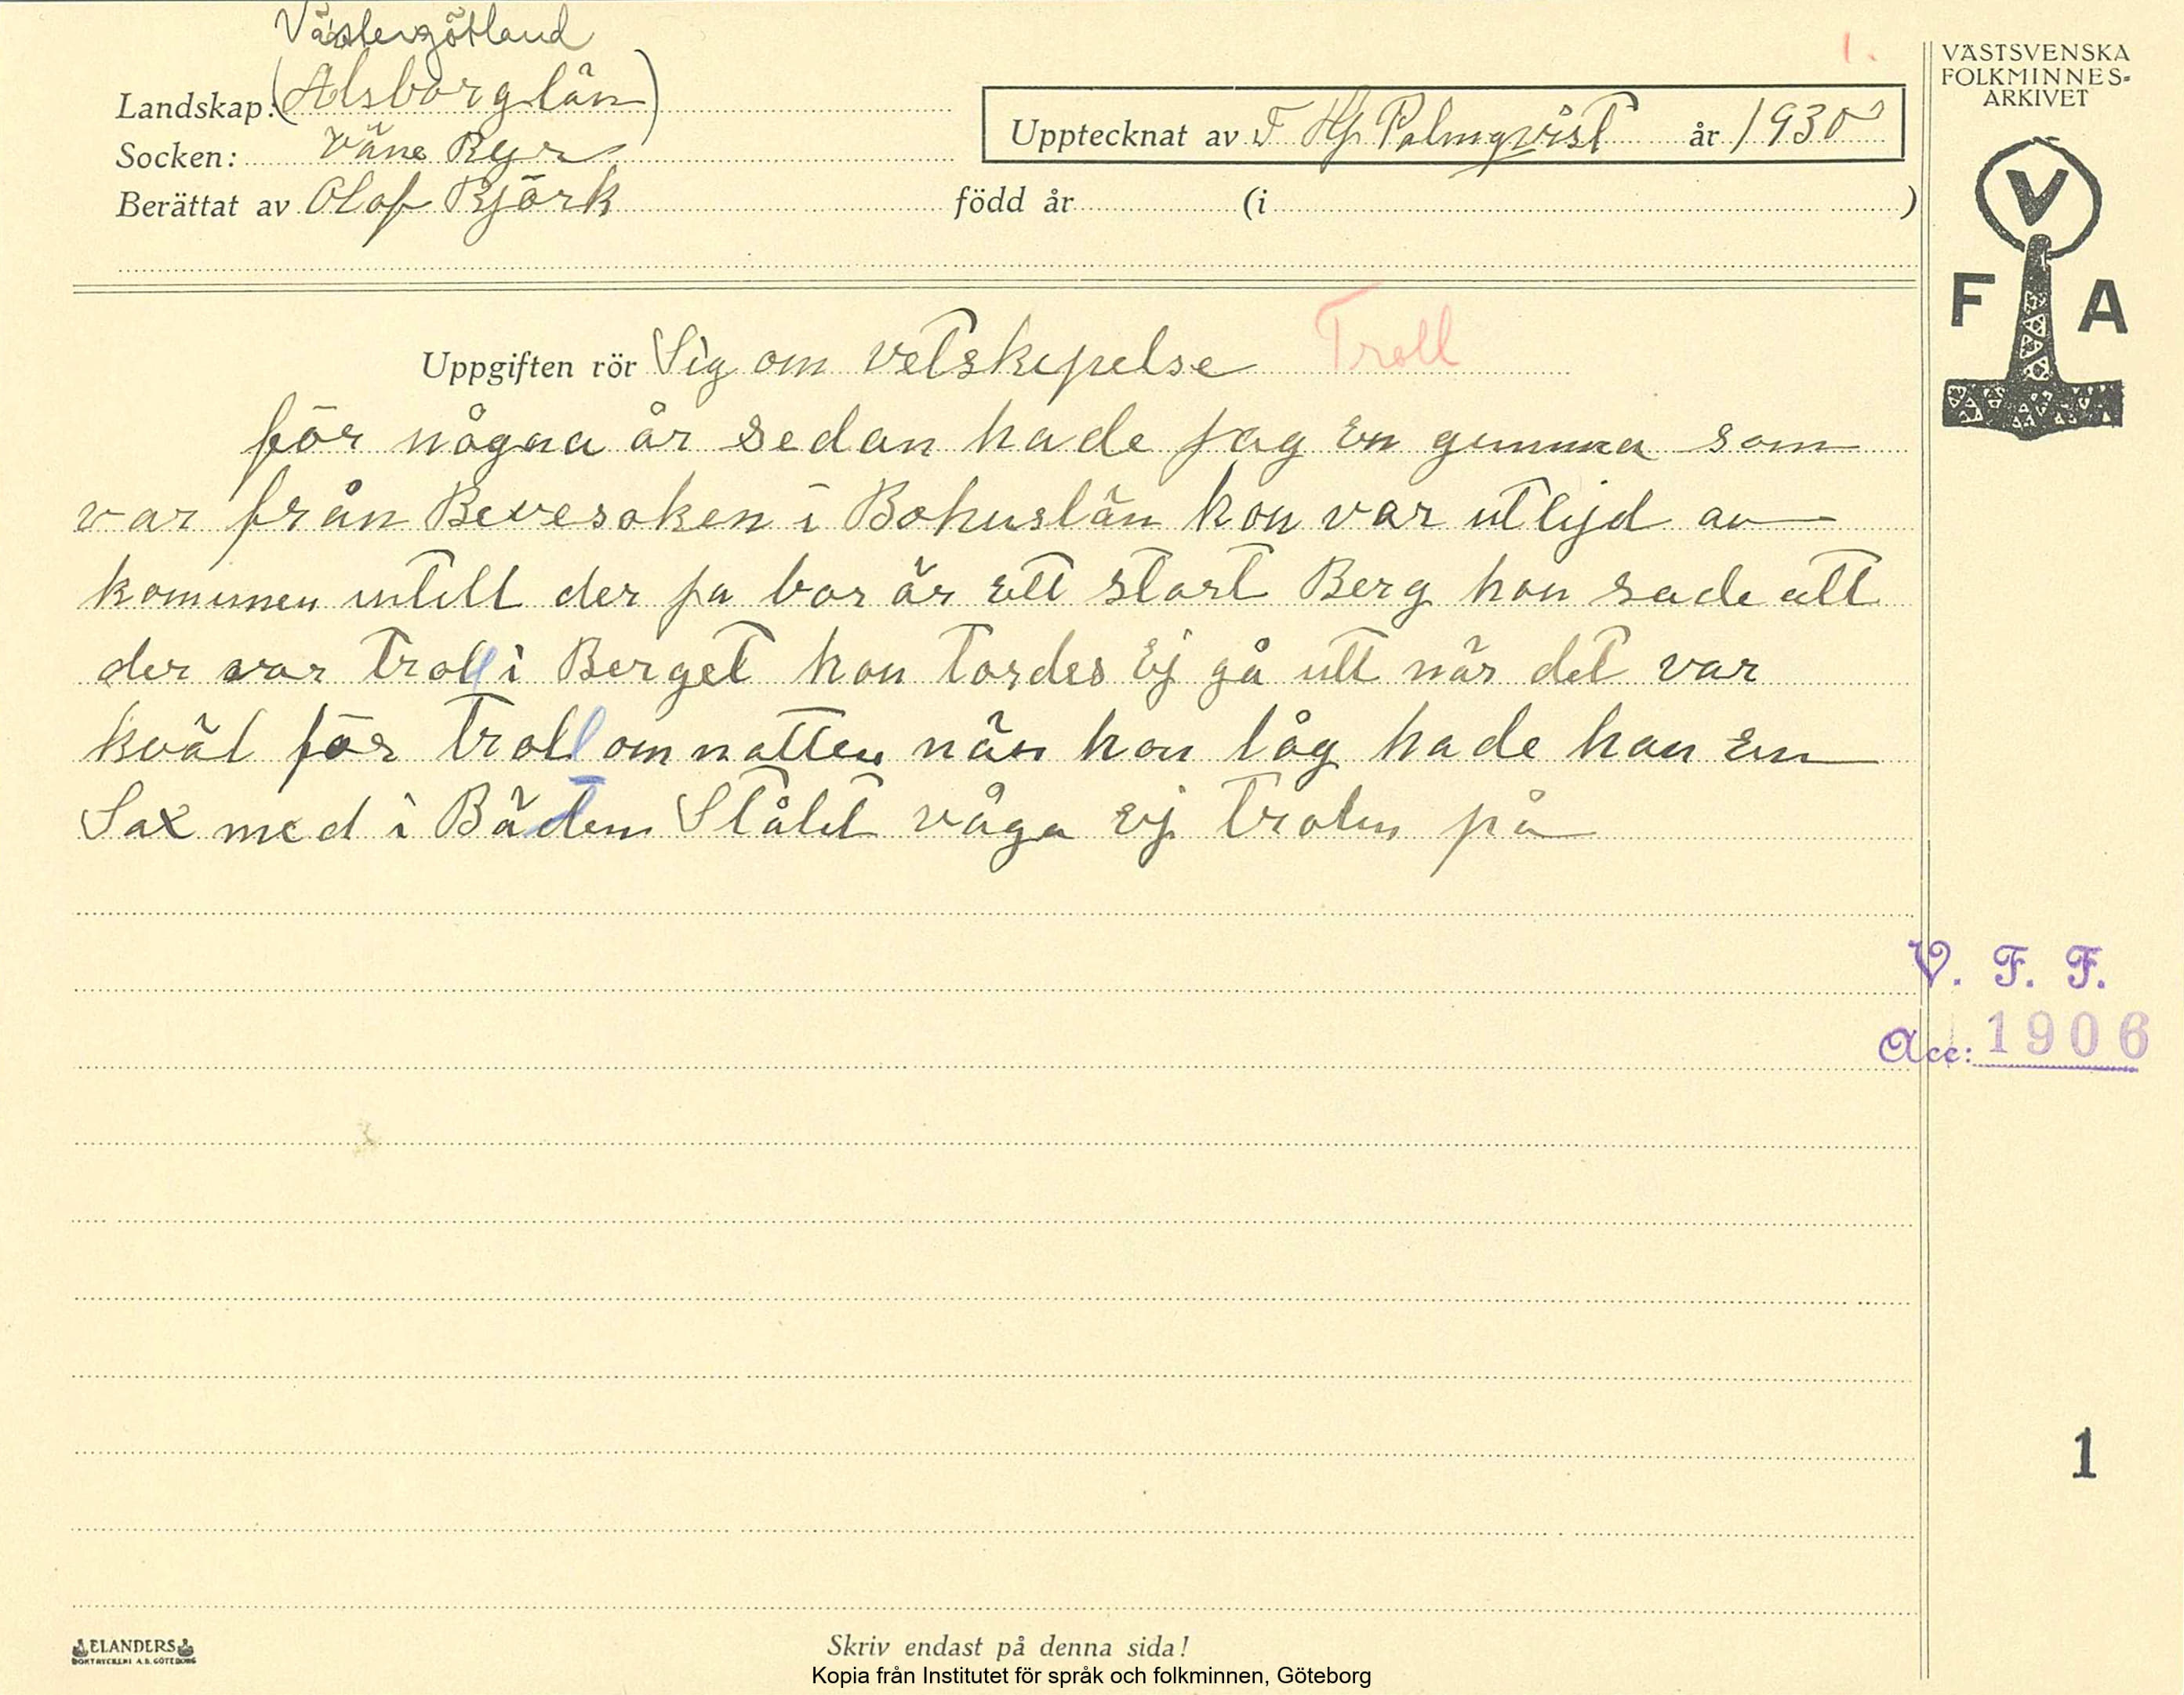 Västergötland
1.
VÄSTSVENSKA
FOLKMINNES-
ARKIVET
Landskap: (Alsborg län)
Upptecknat av F Hj. Palmqvist år 1930
Socken: Väne Ryr
Berättat av Olof Björk född år (i )
V
F A
Uppgiften rör Sig om vetskepelse Troll
för några år sedan hade jag En gumma som
var från Bevesoken i Bohuslän hon var utlejd av
komunen intill der ja bor är Ett stort Berg hon sade att
der var Troll i Berget hon tordes Ej gå utt när det var
kväl för Troll om natten när hon låg hade hon En
Sax med i Bäden Stålet våga Ej Trolen på
V. F. F.
Acc: 1906
1
ELANDERS
BOKTRYCKERI A.B. GÖTEBORG
Skriv endast på denna sida!
Kopia från Institutet för språk och folkminnen, Göteborg